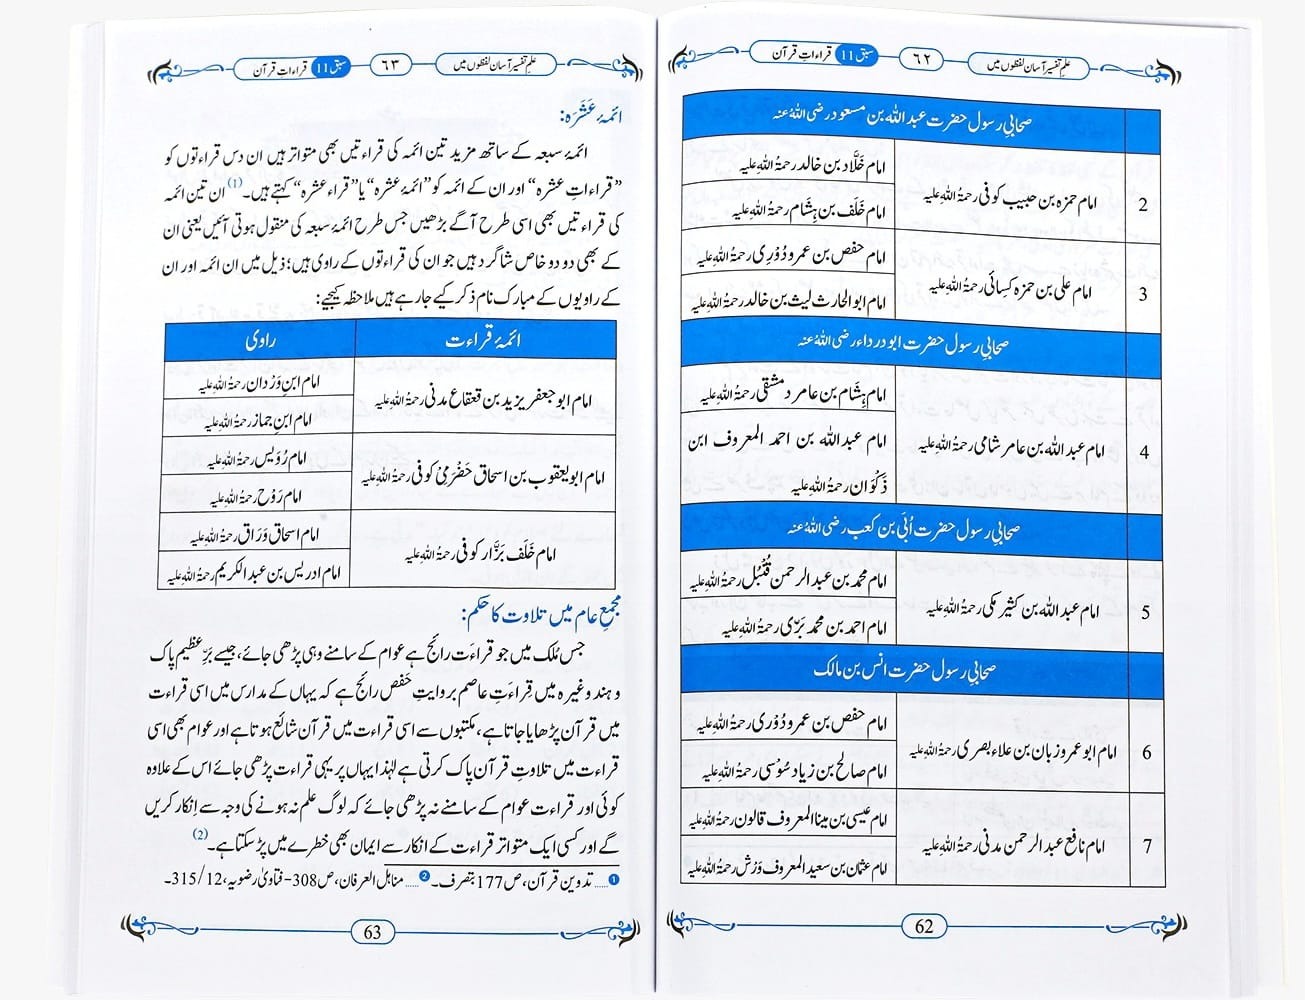 علمِ تفسیر آسان لفظوں میں ٦٢ سبق 11 قراءاتِ قرآن
صحابیِ رسول حضرت عبد اللہ بن مسعود رضی اللہُ عنہ
2 امام حمزہ بن حبیب کوفی رحمۃُ اللہِ علیہ
امام خَلَّاد بن خالد رحمۃُ اللہِ علیہ
امام خَلَف بن ہِشَام رحمۃُ اللہِ علیہ
3 امام علی بن حمزہ کِسائی رحمۃُ اللہِ علیہ
امام حفص بن عمرو دُوْرِی رحمۃُ اللہِ علیہ
امام ابو الحارث لیث بن خالد رحمۃُ اللہِ علیہ
صحابیِ رسول حضرت ابو درداء رضی اللہُ عنہ
4 امام عبد اللہ بن عامر شامی رحمۃُ اللہِ علیہ
امام ہِشَام بن عامر دمشقی رحمۃُ اللہِ علیہ
امام عبد اللہ بن احمد المعروف ابن
ذَکْوَان رحمۃُ اللہِ علیہ
صحابیِ رسول حضرت اُبَی بن کعب رضی اللہُ عنہ
5 امام عبد اللہ بن کثیر مکی رحمۃُ اللہِ علیہ
امام محمد بن عبد الرحمن قُنْبُل رحمۃُ اللہِ علیہ
امام احمد بن محمد بَزِّی رحمۃُ اللہِ علیہ
صحابیِ رسول حضرت انس بن مالک
6 امام ابو عمرو زبان بن علاء بصری رحمۃُ اللہِ علیہ
امام حفص بن عمرو دُوْرِی رحمۃُ اللہِ علیہ
امام صالح بن زیاد سُوْسی رحمۃُ اللہِ علیہ
7 امام نافع عبد الرحمن مدنی رحمۃُ اللہِ علیہ
امام عیسی بن مینا المعروف قالون رحمۃُ اللہِ علیہ
امام عثمان بن سعید المعروف وَرْش رحمۃُ اللہِ علیہ
62
علمِ تفسیر آسان لفظوں میں ٦٣ سبق 11 قراءاتِ قرآن
ائمۂ عَشَرَہ:
ائمۂ سبعہ کے ساتھ مزید تین ائمہ کی قراءتیں بھی متواتر ہیں ان دس قراءتوں کو
”قراءاتِ عشرہ“ اور ان کے ائمہ کو ”ائمۂ عشرہ“ یا ”قراء عشرہ“ کہتے ہیں۔(1) ان تین ائمہ
کی قراءتیں بھی اسی طرح آگے بڑھیں جس طرح ائمۂ سبعہ کی منقول ہوتی آئیں یعنی ان
کے بھی دو دو خاص شاگرد ہیں جو ان کی قراءتوں کے راوی ہیں؛ ذیل میں ان ائمہ اور ان
کے راویوں کے مبارک نام ذکر کیے جا رہے ہیں ملاحظہ کیجیے:
ائمۂ قراءت راوی
امام ابو جعفر یزید بن قعقاع مدنی رحمۃُ اللہِ علیہ
امام ابنِ وَرْدان رحمۃُ اللہِ علیہ
امام ابنِ جماز رحمۃُ اللہِ علیہ
امام ابو یعقوب بن اسحاق حَضْرَمِیْ کوفی رحمۃُ اللہِ علیہ
امام رُوَیس رحمۃُ اللہِ علیہ
امام رَوْح رحمۃُ اللہِ علیہ
امام خَلَف بَزَّار کوفی رحمۃُ اللہِ علیہ
امام اسحاق وَرّاق رحمۃُ اللہِ علیہ
امام ادریس بن عبد الکریم رحمۃُ اللہِ علیہ
مجمعِ عام میں تلاوت کا حکم:
جس مُلک میں جو قراءَت رائج ہے عوام کے سامنے وہی پڑھی جائے، جیسے برِّ عظیم پاک
و ہند وغیرہ میں قِراءَتِ عاصم بروایتِ حَفص رائج ہے کہ یہاں کے مدارس میں اسی قراءت
میں قرآن پڑھایا جاتا ہے، مکتبوں سے اسی قراءت میں قرآن شائع ہوتا ہے اور عوام بھی اسی
قراءت میں تلاوتِ قرآن پاک کرتی ہے لہٰذا یہاں پر یہی قراءت پڑھی جائے اس کے علاوہ
کوئی اور قراءت عوام کے سامنے نہ پڑھی جائے کہ لوگ علم نہ ہونے کی وجہ سے اِنکار کریں
گے اور کسی ایک متواتر قراءت کے انکار سے ایمان بھی خطرے میں پڑ سکتا ہے۔(2)
1 ..... تدوین قرآن، ص177 بتصرف۔ 2 ..... مناہل العرفان، ص308- فتاویٰ رضویہ، 12/315۔
63